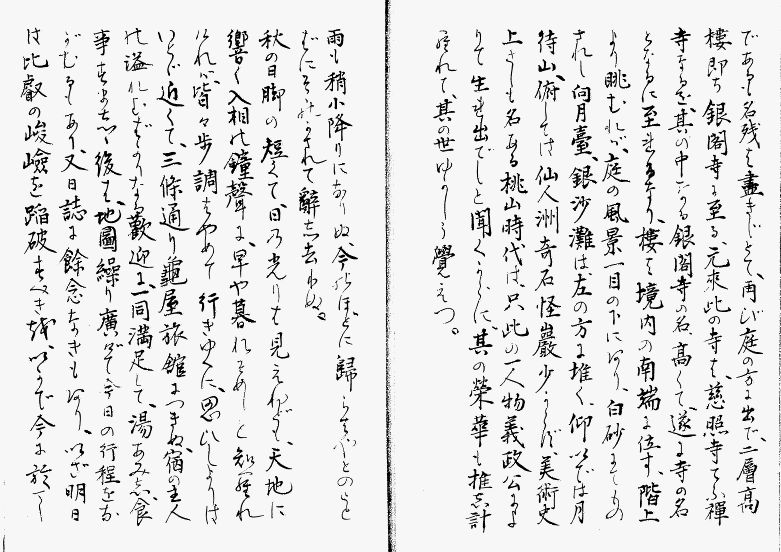 であるも名残は盡きじとて、再び庭の方に出で、二層高
樓即ち銀閣寺に至る、元來此の寺は、慈照寺てふ禪
寺なるを、其の中なる銀閣寺の名高くて、遂に寺の名
となるに至れるなり、樓は境内の南端に位す、階上
より眺むれば、庭の風景一目の下にあり、白砂もてもの
されし向月臺、銀沙灘は左の方に堆く、仰いでは月
待山、俯しては仙人洲奇石怪巖少からず、美術史
上さしも名ある桃山時代は、只此の一人物義政公によ
りて生れ出でしと聞くからに、其の榮華も推し計
られて、其の世ゆかしう覺えつ。
雨も稍小降りになりぬ、今のほどに歸らばやとのこと
にそそのかされて辭し去りぬ。
秋の日脚の短くて、日の光りも見えねども、天地に
響く入相の鐘聲に、早や暮れそめしと知られ
ければ、皆々歩調をはやめて行きゆくに、思ひしよりは
いとど近くて、三條通り龜屋旅館につきぬ、宿の主人
の溢れむばかりなる歡迎に、一同滿足して、湯あみし、食
事をませし後は、地圖繰り廣げて今日の行程をな
がむるもあり、又日誌に餘念なきもあり、いざ明日
は比叡の峻嶮を踏破すべきを、いかで今に於て